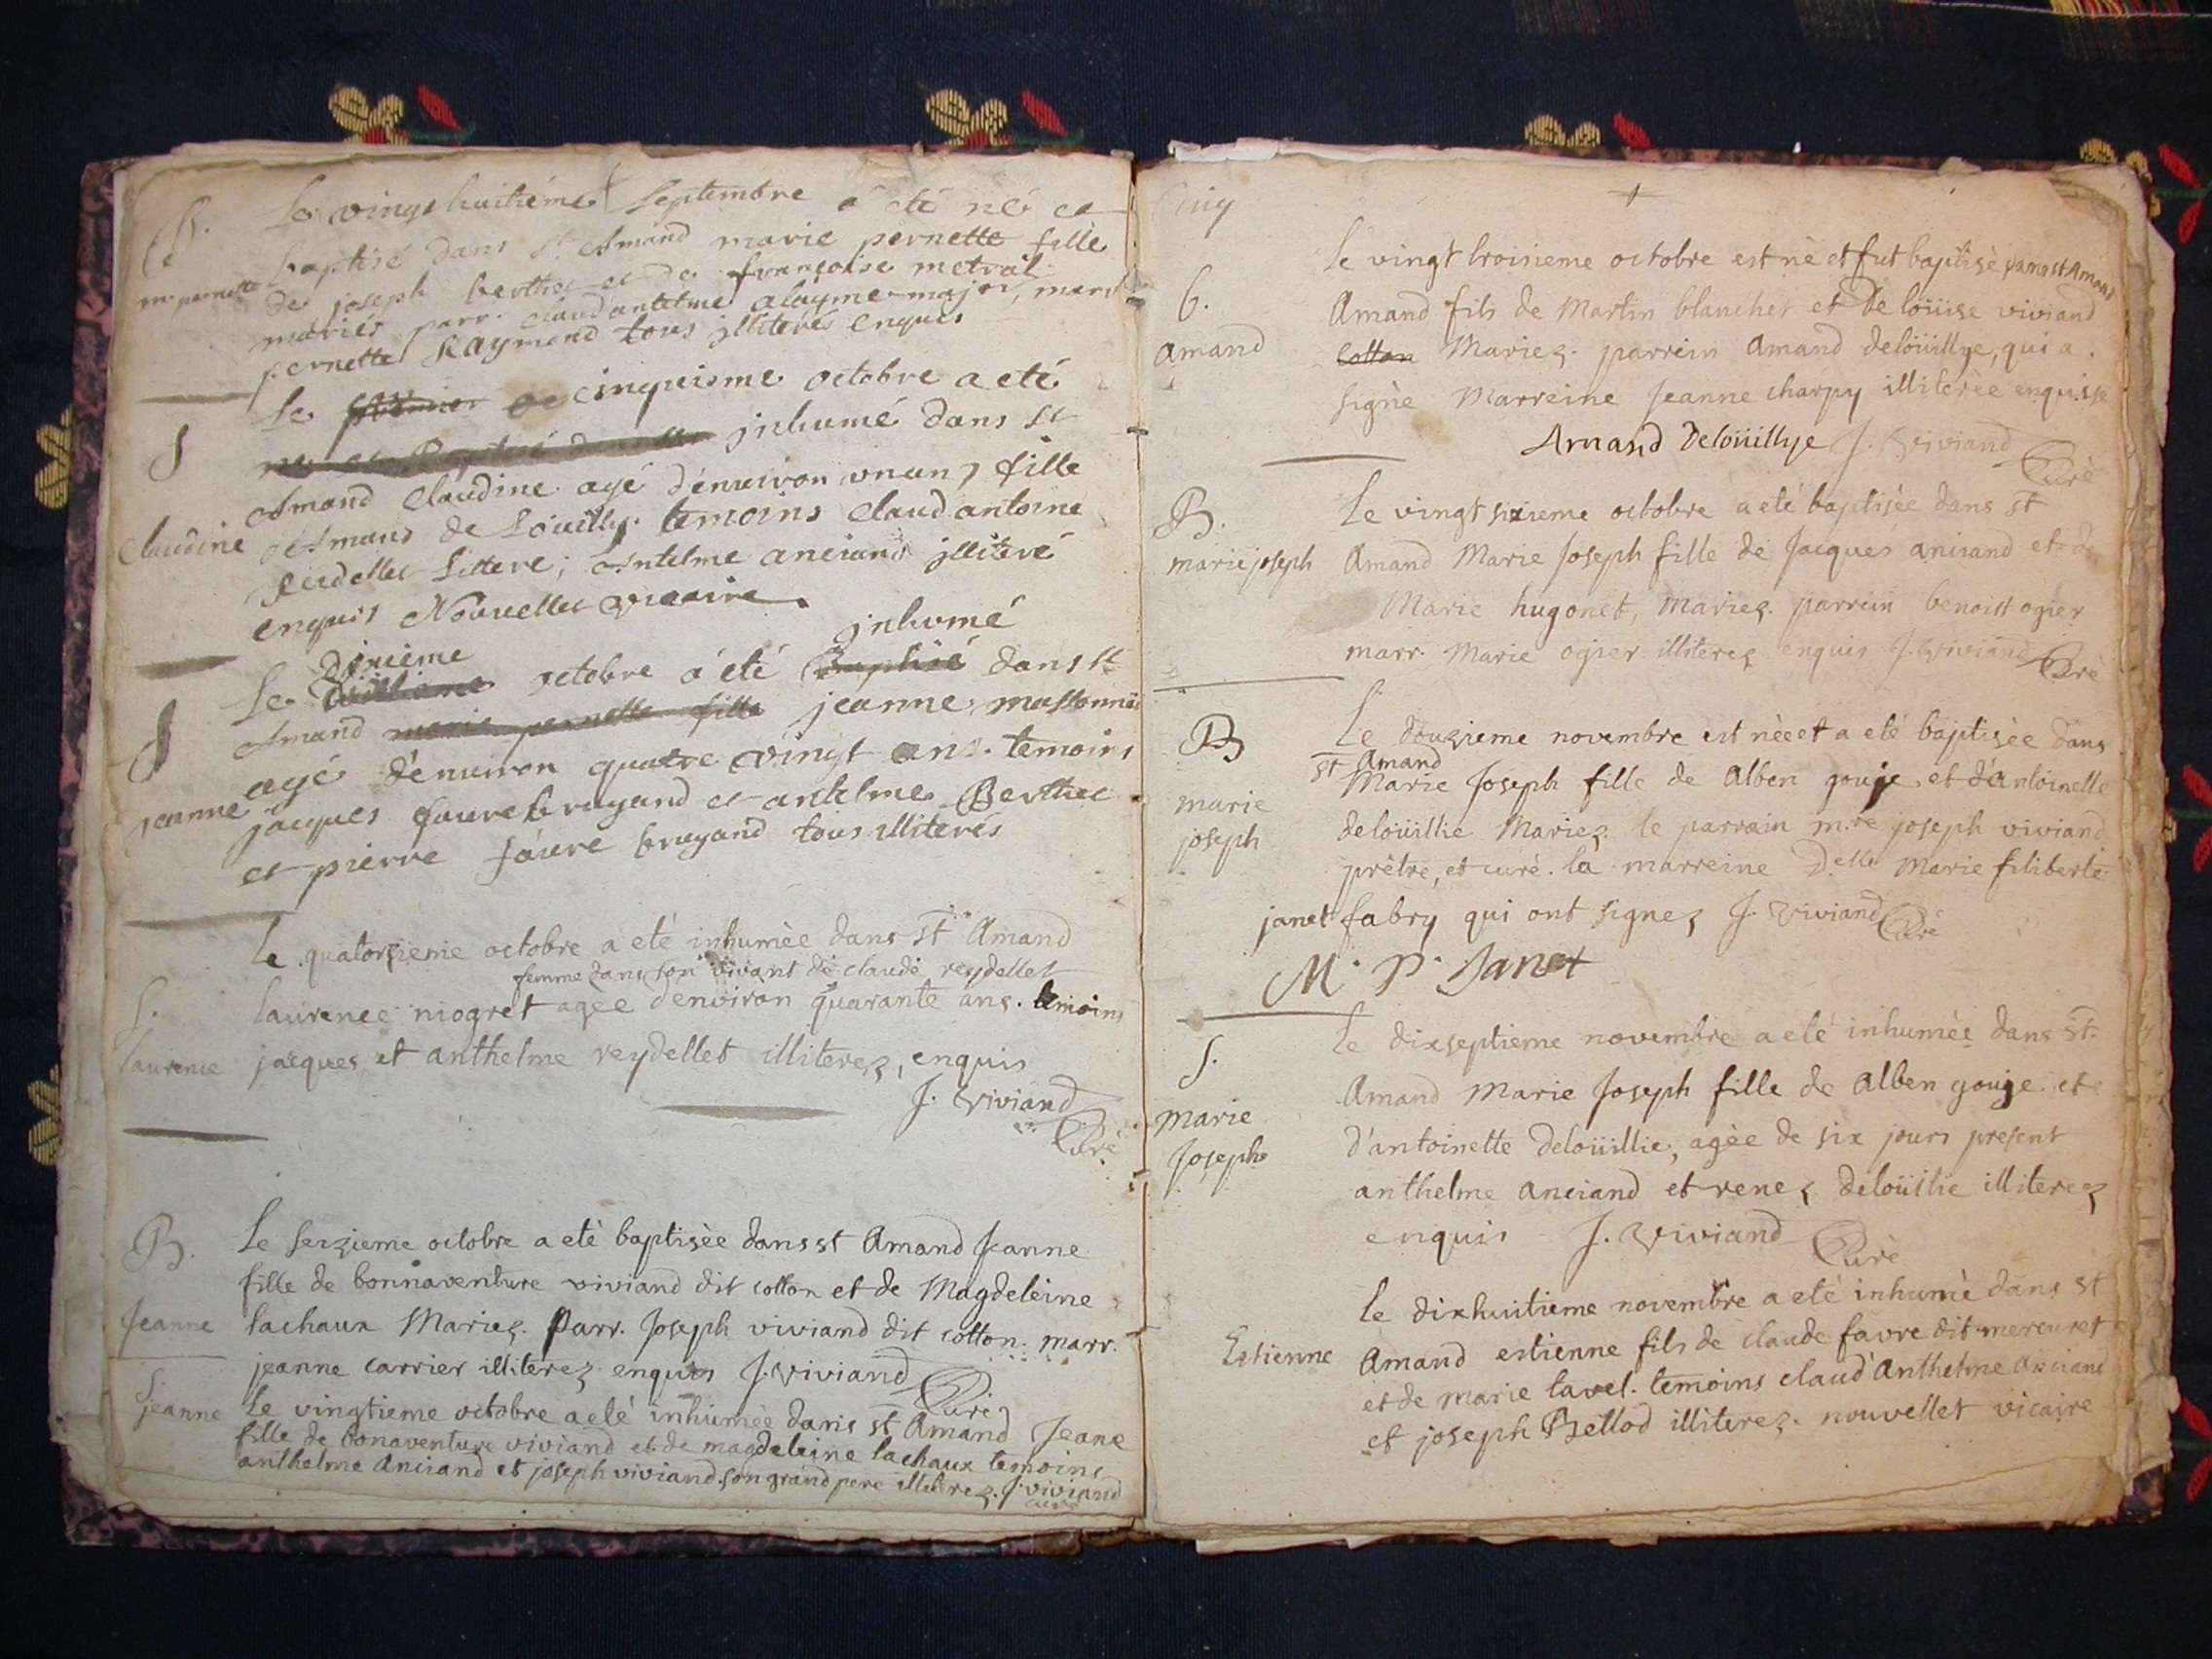 B.
Le vingt huitiéme Septembre a été né et
m. pernette
baptisé dans St Amand marie pernette fille
de joseph berthet et de françoise metral
mariés parr. claud'antelme alayme major, marr
pernette Raymond tous jlliterés enquis
S
Le premier cinquieme octobre a eté
jnhumé dans St
Claudine
Amand Claudine agé d'enuiron un an, fille
d'Amand de Loüilly. temoins Claud antoine
Reidellet Littere; Antelme anciand jlliteré
enquis Nouuellet vicaire
S
dixieme jnhumé
Le huitieme octobre a eté Baptisé dans St
Amand marie pernette fille jeanne massonnet
jeanne
agé d'enuiron quatre vingt ans. temoins
jacques faure bruyand et antelme Berthet
et pierre faure bruyand tous illiterés
S.
laurence
le quatorzieme octobre a eté inhumèe dans St Amand
femme dans son vivant de claude reydellet
laurence niogret agee d'environ quarante ans. temoins
jacques et anthelme reydellet illiterez, enquis
J. Viviand
Curè
B.
Jeanne
Le seizieme octobre a etè baptisèe dans st Amand Jeanne
fille de bonnaventure viviand dit cotton et de Magdeleine
lachaux Mariez. Parr. Joseph viviand dit cotton. marr.
jeanne carrier illiterez enquis J. Viviand Curè
S.
jeanne
Le vingtieme octobre a eté inhumèe dans st Amand Jeane
fille de bonaventure viviand et de magdeleine lachaux temoins
anthelme Anciand et joseph viviand son grand pere illiterez. J. viviand
curè
6.
Amand
le vingt troisieme octobre est nè et fut baptisè dans st Amand
Amand fils de Martin blanchet et De loüise viviand
cotton Mariez. parrein Amand deloüillye, qui a
signè Marreine Jeanne charpy illiterèe enquise
Amand Deloüillye J. Viviand
Curè
B.
marie joseph
Le vingt sixieme octobre a eté baptisèe dans st
Amand Marie Joseph fille de Jacques anciand et de
Marie hugonet, mariez. parrein benoist ogier
marr. Marie ogier illiterez enquis J. Viviand Curè
B
marie
joseph
Le douzieme novembre est nèe et a eté baptisèe dans
st Amand
Marie Joseph fille de Alben gouje et d'antoinette
deloüillie Mariez. le parrain m.re joseph viviand
prêtre, et curé. la marreine D.elle Marie filiberte
janet fabry qui ont signez J. Viviand Curè
M. P. Janet
S.
Marie
Joseph
Le dixseptieme novembre a eté inhumèe dans st.
Amand Marie Joseph fille de Alben gouje et
d'antoinette deloüillie, agèe de six jours present
anthelme anciand et renez deloüilie illiterez
enquis J. Viviand Curè
Estienne
le dixhuitieme novembre a eté inhumè dans st
Amand estienne fils de claude favre dit mercuret
et de marie tavel. temoins claud'Anthelme Anciand
et joseph Bellod illiterez. nouvellet vicaire